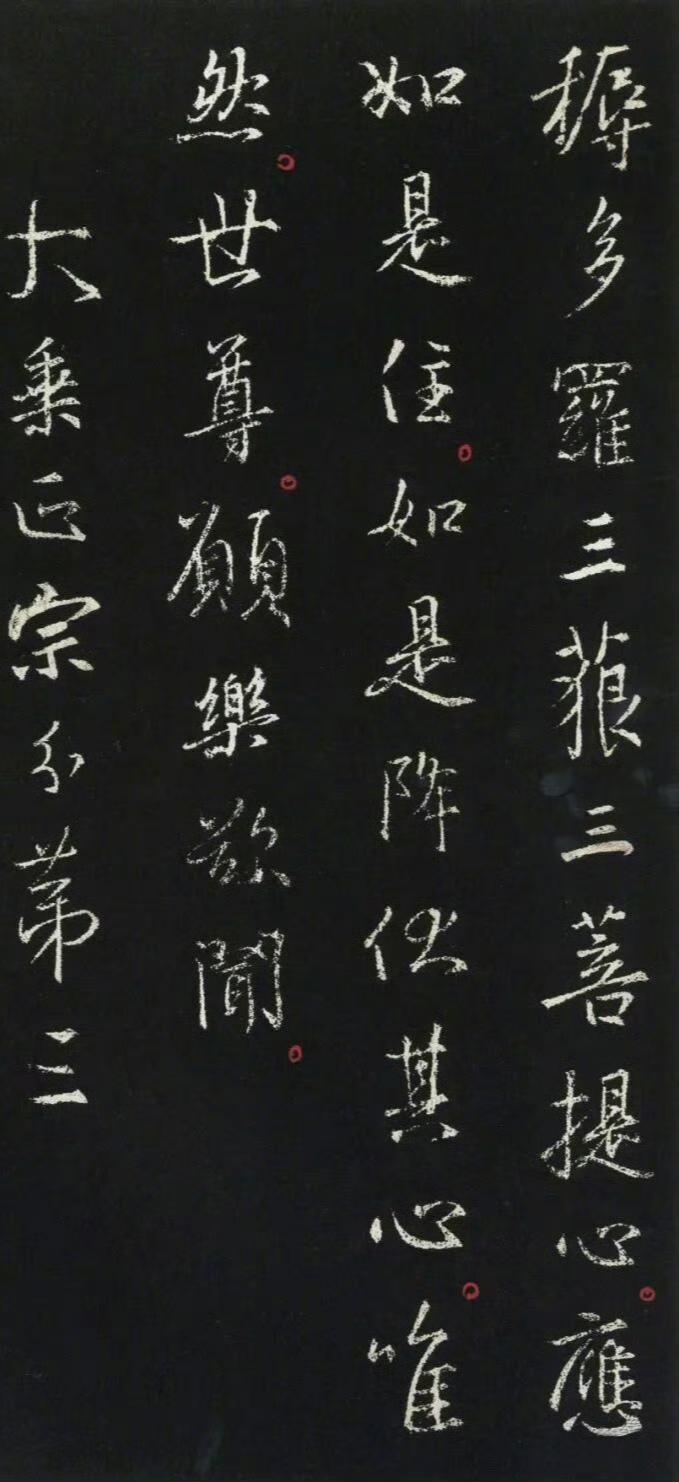 耨多羅三藐三菩提心應
如是住如是降伏其心唯
然世尊願樂欲聞
大乘正宗分第三